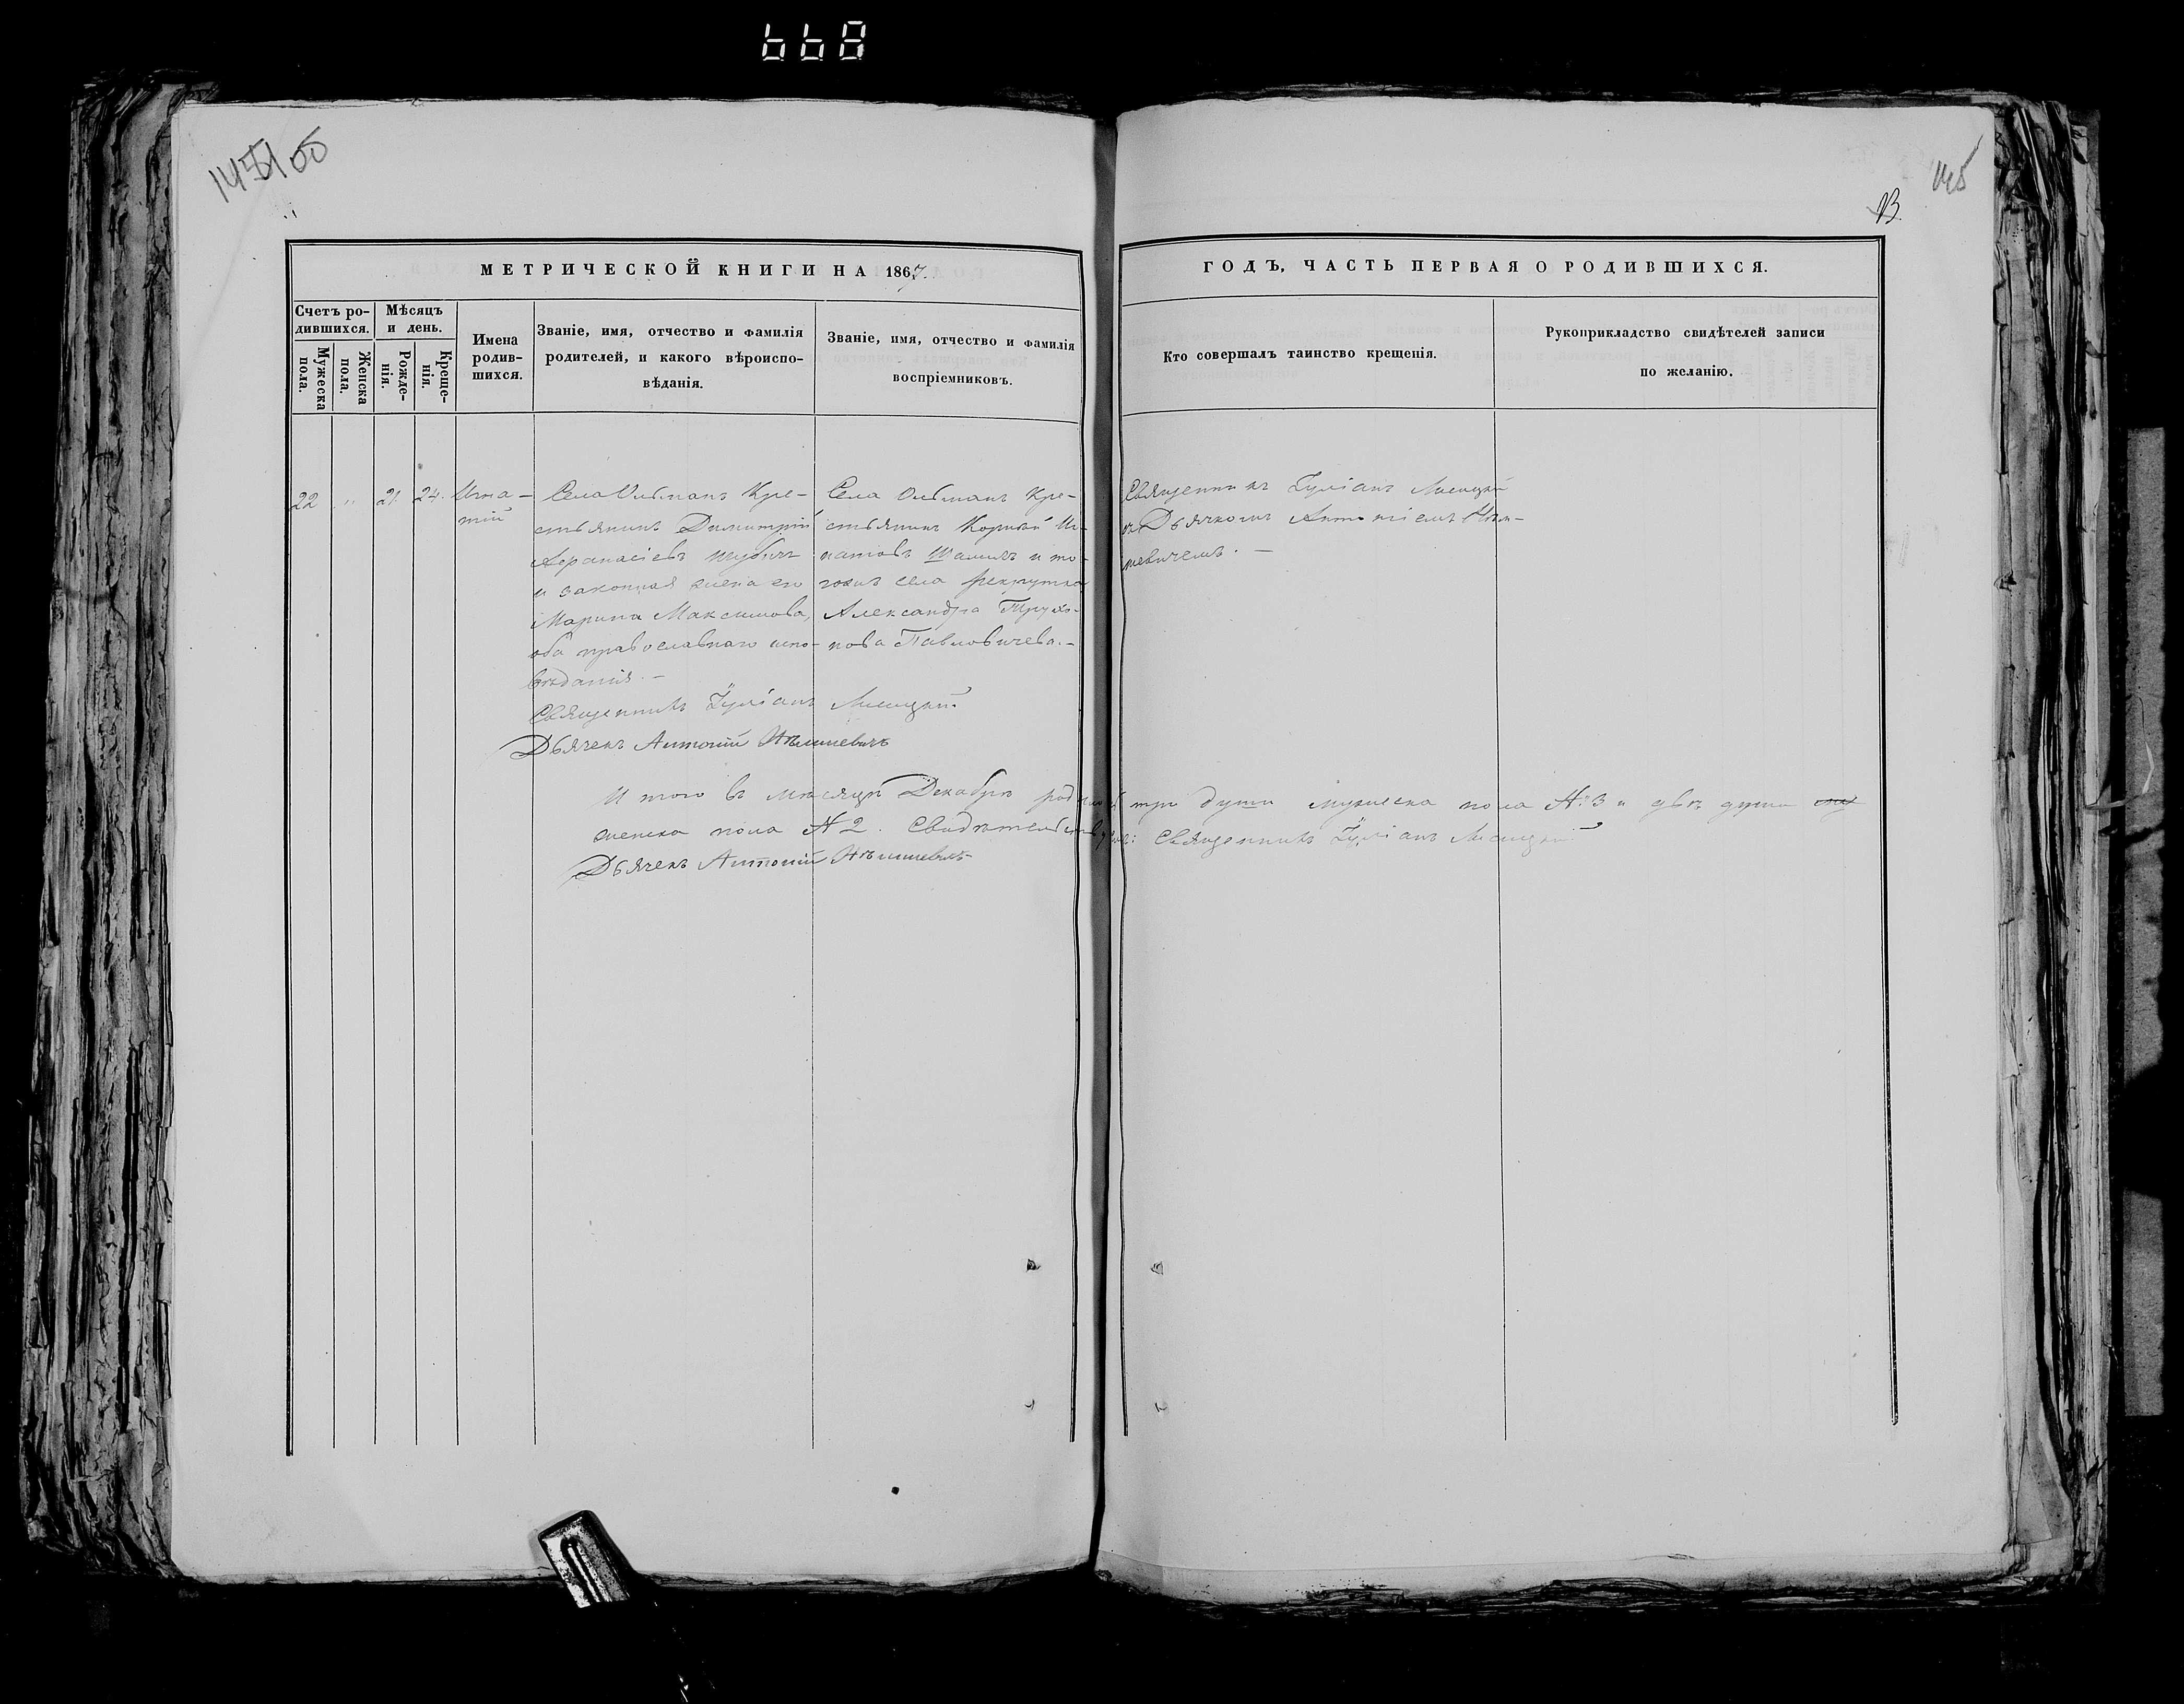 668
145
МЕТРИЧЕСКОЙ КНИГИ НА 1867.
ГОДЪ, ЧАСТЬ ПЕРВАЯ О РОДИВШИХСЯ.
Счетъ родившихся.
Мужеска пола.
Женска пола.
Мѣсяцъ и день.
Рожденія.
Крещенія.
Имена родившихся.
Званіе, имя, отчество и фамилія
родителей, и какого вѣроиспо-
вѣданія.
Званіе, имя, отчество и фамилія
воспріемниковъ.
Кто совершалъ таинство крещенія.
Рукоприкладство свидѣтелей записи
по желанію.
22 " 21 24. Игна-
тій
Села Ольманъ Кре-
стьянинъ Димитрій
Афанасіевъ
и законная жена его
Марина Максимова,
оба православнаго испо-
вѣданія. –
Села Ольманъ Кре-
стьянинъ Корнѣй Иг-
натовъ и то-
гожъ села рекрутка
Александра Трухо-
нова Павловичева. –
Священникъ Іуліанъ Лисицкій
съ Дьячкомъ Антоніемъ
Священникъ Іуліанъ Лисицкій.
Дьячекъ Антоній
И того въ мѣсяцѣ Декабрѣ родилось три души мужеска пола №: 3 и двѣ души
женска пола № 2. Свидѣтельствуютъ: Священникъ Іуліанъ Лисицкій
Дьячекъ Антоній